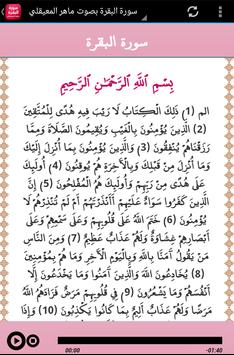 سورة البقرة بصوت ماهر المعيقلي
سورة البقرة
بِسْمِ ٱللَّهِ ٱلرَّحْمَٰنِ ٱلرَّحِيمِ
الم (1) ذَٰلِكَ الْكِتَابُ لَا رَيْبَ فِيهِ هُدًى لِلْمُتَّقِينَ
(2) الَّذِينَ يُؤْمِنُونَ بِالْغَيْبِ وَيُقِيمُونَ الصَّلَاةَ وَمِمَّا
رَزَقْنَاهُمْ يُنْفِقُونَ (3) وَالَّذِينَ يُؤْمِنُونَ بِمَا أُنْزِلَ إِلَيْكَ
وَمَا أُنْزِلَ مِنْ قَبْلِكَ وَبِالْآخِرَةِ هُمْ يُوقِنُونَ (4) أُولَٰئِكَ
عَلَىٰ هُدًى مِنْ رَبِّهِمْ وَأُولَٰئِكَ هُمُ الْمُفْلِحُونَ (5) إِنَّ
الَّذِينَ كَفَرُوا سَوَاءٌ عَلَيْهِمْ أَأَنْذَرْتَهُمْ أَمْ لَمْ تُنْذِرْهُمْ لَا
يُؤْمِنُونَ (6) خَتَمَ اللَّهُ عَلَىٰ قُلُوبِهِمْ وَعَلَىٰ سَمْعِهِمْ وَعَلَىٰ
أَبْصَارِهِمْ غِشَاوَةٌ وَلَهُمْ عَذَابٌ عَظِيمٌ (7) وَمِنَ النَّاسِ
مَنْ يَقُولُ آمَنَّا بِاللَّهِ وَبِالْيَوْمِ الْآخِرِ وَمَا هُمْ بِمُؤْمِنِينَ
(8) يُخَادِعُونَ اللَّهَ وَالَّذِينَ آمَنُوا وَمَا يَخْدَعُونَ إِلَّا
أَنْفُسَهُمْ وَمَا يَشْعُرُونَ (9) فِي قُلُوبِهِمْ مَرَضٌ فَزَادَهُمُ
اللَّهُ مَرَضًا وَلَهُمْ عَذَابٌ أَلِيمٌ بِمَا كَانُوا يَكْذِبُونَ (10)
00:00 -01:40